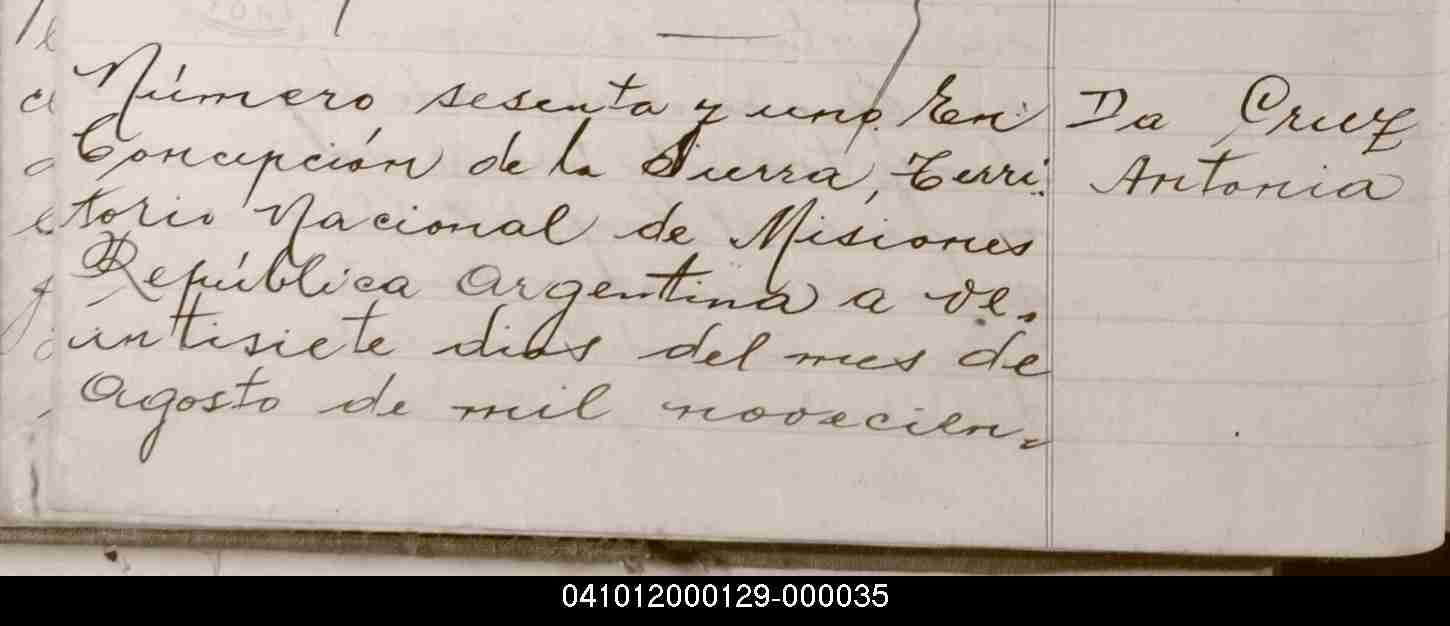 Número sesenta y uno. En
Concepción de la Sierra, Terri-
torio Nacional de Misiones
República Argentina a ve-
intisiete dias del mes de
Agosto de mil novecien-
Da Cruz
Antonia
041012000129-000035